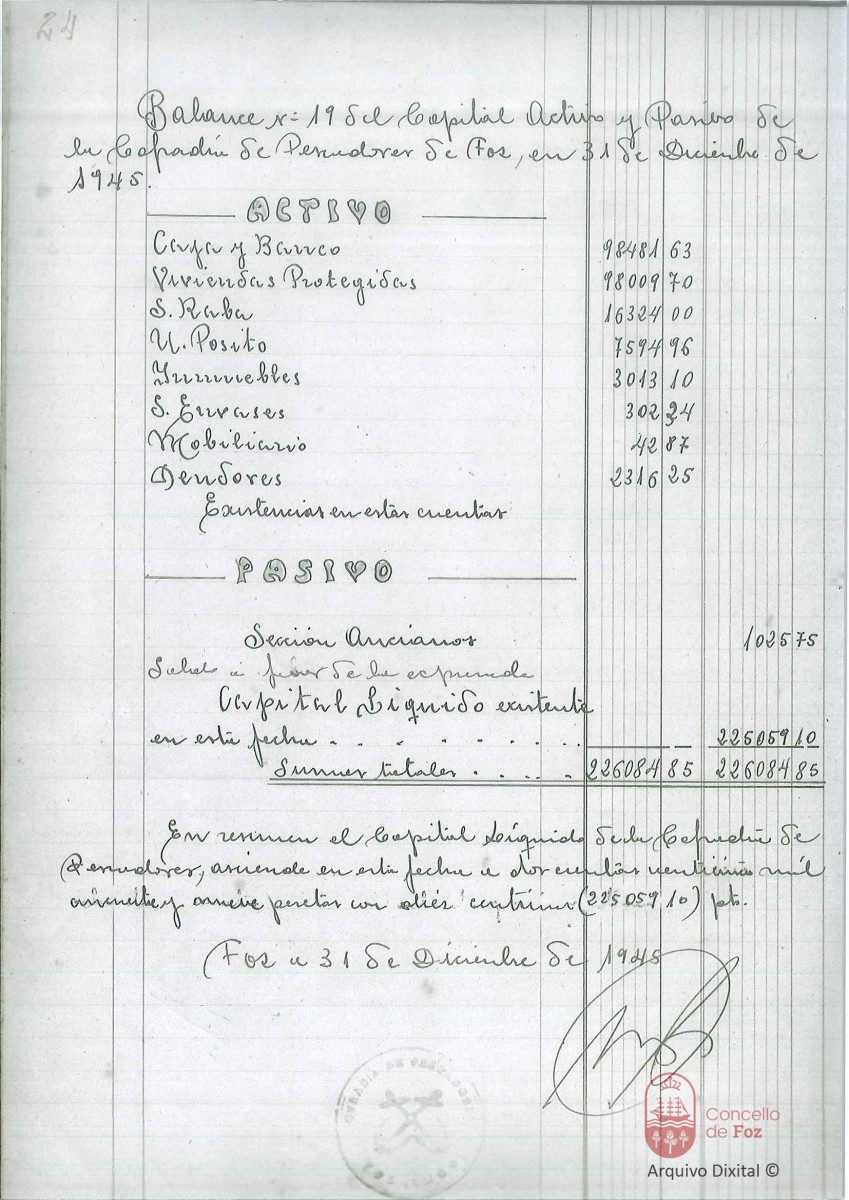 24
Balance nº 19 del Capital Activo y Pasivo de
la Cofradía de Pescadores de Foz, en 31 de Diciembre de
1945.
ACTIVO
Caja y Banco 98481 63
Viviendas Protegidas 98009 70
S. Raba 16324 00
U. Posito 7594 96
Inmuebles 3013 10
S. Envases 302 34
Mobiliario 42 87
Deudores 2316 25
Existencias en estas cuentas
PASIVO
Sección Ancianos 1025 75
Saldo a favor de la expresada
Capital Liquido existente
en esta fecha . . . . . . . . 225059 10
Sumas totales . . . . . 226084 85 226084 85
En resumen el Capital Líquido de la Cofradía de
Pescadores, asciende en esta fecha a doscientas veinticinco mil
cincuenta y nueve pesetas con diez centimos (225059 10) pts.
Foz a 31 de Diciembre de 1945
COFRADIA DE PESCADORES
FOZ
Concello
de Foz
Arquivo Dixital ©